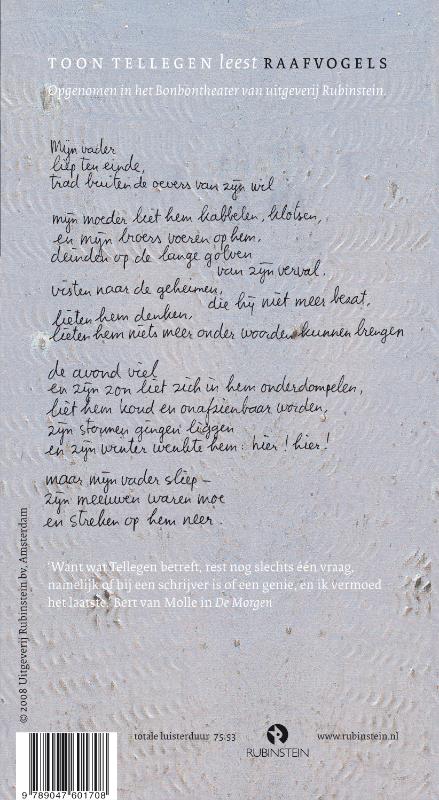 TOON TELLEGEN leest RAAFVOGELS
Opgenomen in het Bonbontheater van uitgeverij Rubinstein.
Mijn vader
liep ten einde,
trad buiten de oevers van zijn wil
mijn moeder liet hem kabbelen, klotsen,
en mijn broers voeren op hem,
deinden op de lange golven
van zijn verval,
visten naar de geheimen,
die hij niet meer bezat,
lieten hem denken,
lieten hem niets meer onder woorden kunnen brengen
de avond viel
en zijn zon liet zich in hem onderdompelen,
liet hem koud en onafzienbaar worden,
zijn stormen gingen liggen
en zijn winter wenkte hem: hier! hier!
maar mijn vader sliep –
zijn meeuwen waren moe
en streken op hem neer.
'Want wat Tellegen betreft, rest nog slechts één vraag,
namelijk of hij een schrijver is of een genie, en ik vermoed
het laatste.' Bert van Molle in De Morgen
© 2008 Uitgeverij Rubinstein bv, Amsterdam
totale luisterduur 75.53
RUBINSTEIN
www.rubinstein.nl
9 789047 601708